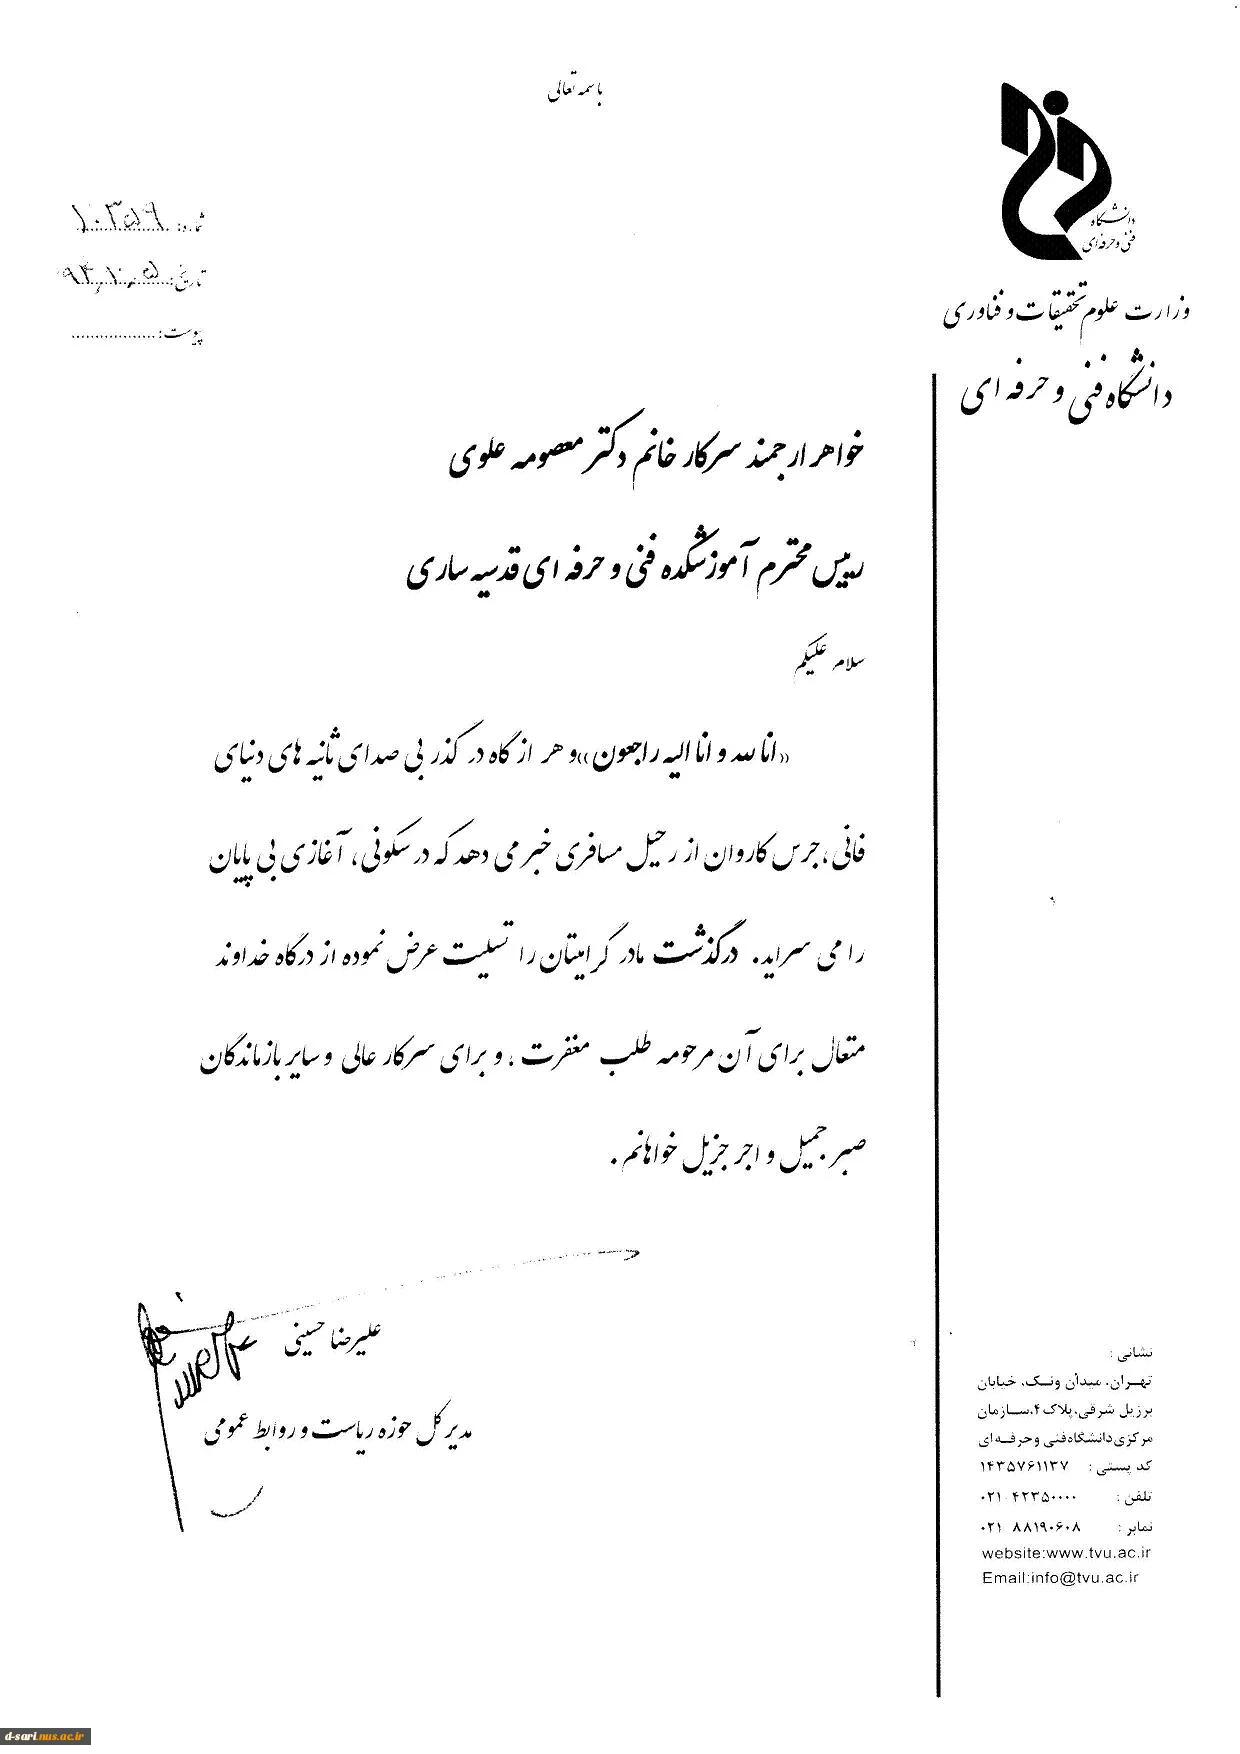 باسمه تعالی
دانشگاه
فنی و حرفه‌ای
وزارت علوم تحقیقات و فناوری
دانشگاه فنی و حرفه ای
شماره: ۱۰۳۵۱۹
تاریخ: ۹۴,۱۰,۵
پیوست: ..................
خواهر ارجمند سرکار خانم دکتر معصومه علوی
رییس محترم آموزشکده فنی و حرفه ای قدسیه ساری
سلام علیکم
«انا لله و انا الیه راجعون» و هر از گاه در گذر بی صدای ثانیه های دنیای
فانی، جرس کاروان از رحیل مسافری خبر می دهد که در سکونی، آغازی بی پایان
را می سراید. درگذشت مادر گرامیتان را تسلیت عرض نموده از درگاه خداوند
متعال برای آن مرحومه طلب مغفرت، و برای سرکار عالی و سایر بازماندگان
صبر جمیل و اجر جزیل خواهانم.
علیرضا حسینی
مدیر کل حوزه ریاست و روابط عمومی
نشانی:
تهران، میدان ونک، خیابان
برزیل شرقی، پلاک ۴، سازمان
مرکزی دانشگاه فنی و حرفه ای
کد پستی: ۱۴۳۵۷۶۱۱۳۷
تلفن: ۰۲۱ ۴۲۳۵۰۰۰۰
نمابر: ۰۲۱ ۸۸۱۹۰۶۰۸
website:www.tvu.ac.ir
Email:info@tvu.ac.ir
d-sari.nus.ac.ir